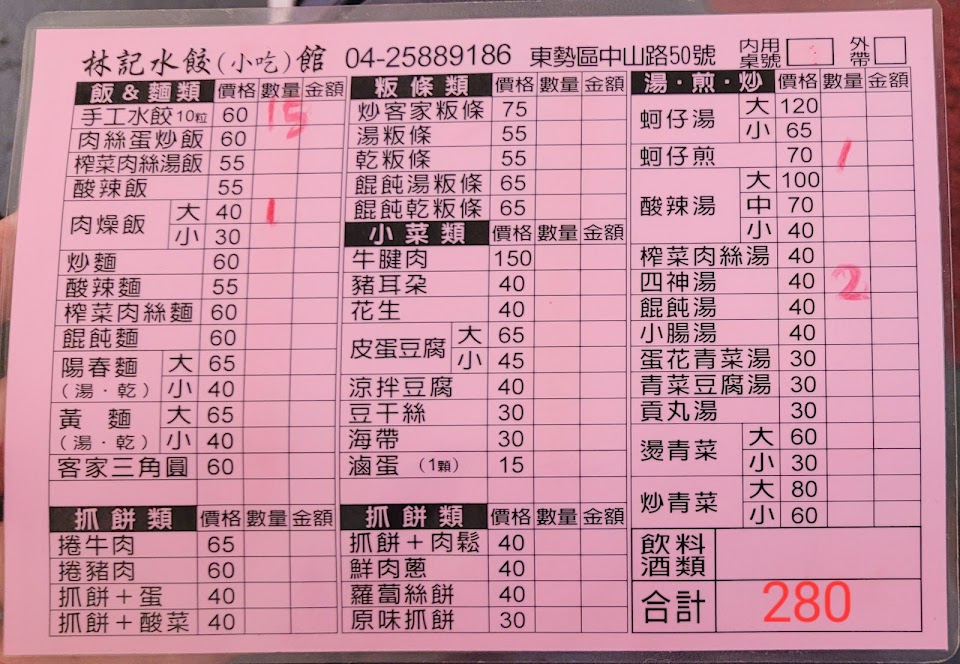 林記水餃(小吃)館 04-25889186 東勢區中山路50號 內用桌號 外帶
飯&麵類 價格 數量 金額
手工水餃10粒 60 15
肉絲蛋炒飯 60
榨菜肉絲湯飯 55
酸辣飯 55
肉燥飯 大 40 1
小 30
炒麵 60
酸辣麵 55
榨菜肉絲麵 60
餛飩麵 60
陽春麵(湯·乾) 大 65
小 40
黃麵(湯·乾) 大 65
小 40
客家三角圓 60
抓餅類 價格 數量 金額
捲牛肉 65
捲豬肉 60
抓餅+蛋 40
抓餅+酸菜 40
粄條類 價格 數量 金額
炒客家粄條 75
湯粄條 55
乾粄條 55
餛飩湯粄條 65
餛飩乾粄條 65
小菜類 價格 數量 金額
牛腱肉 150
豬耳朵 40
花生 40
皮蛋豆腐 大 65
小 45
涼拌豆腐 40
豆干絲 30
海帶 30
滷蛋(1顆) 15
抓餅類 價格 數量 金額
抓餅+肉鬆 40
鮮肉蔥 40
蘿蔔絲餅 40
原味抓餅 30
湯·煎·炒 價格 數量 金額
蚵仔湯 大 120
小 65
蚵仔煎 70 1
酸辣湯 大 100
中 70
小 40
榨菜肉絲湯 40
四神湯 40 2
餛飩湯 40
小腸湯 40
蛋花青菜湯 30
青菜豆腐湯 30
貢丸湯 30
燙青菜 大 60
小 30
炒青菜 大 80
小 60
飲料酒類
合計 280